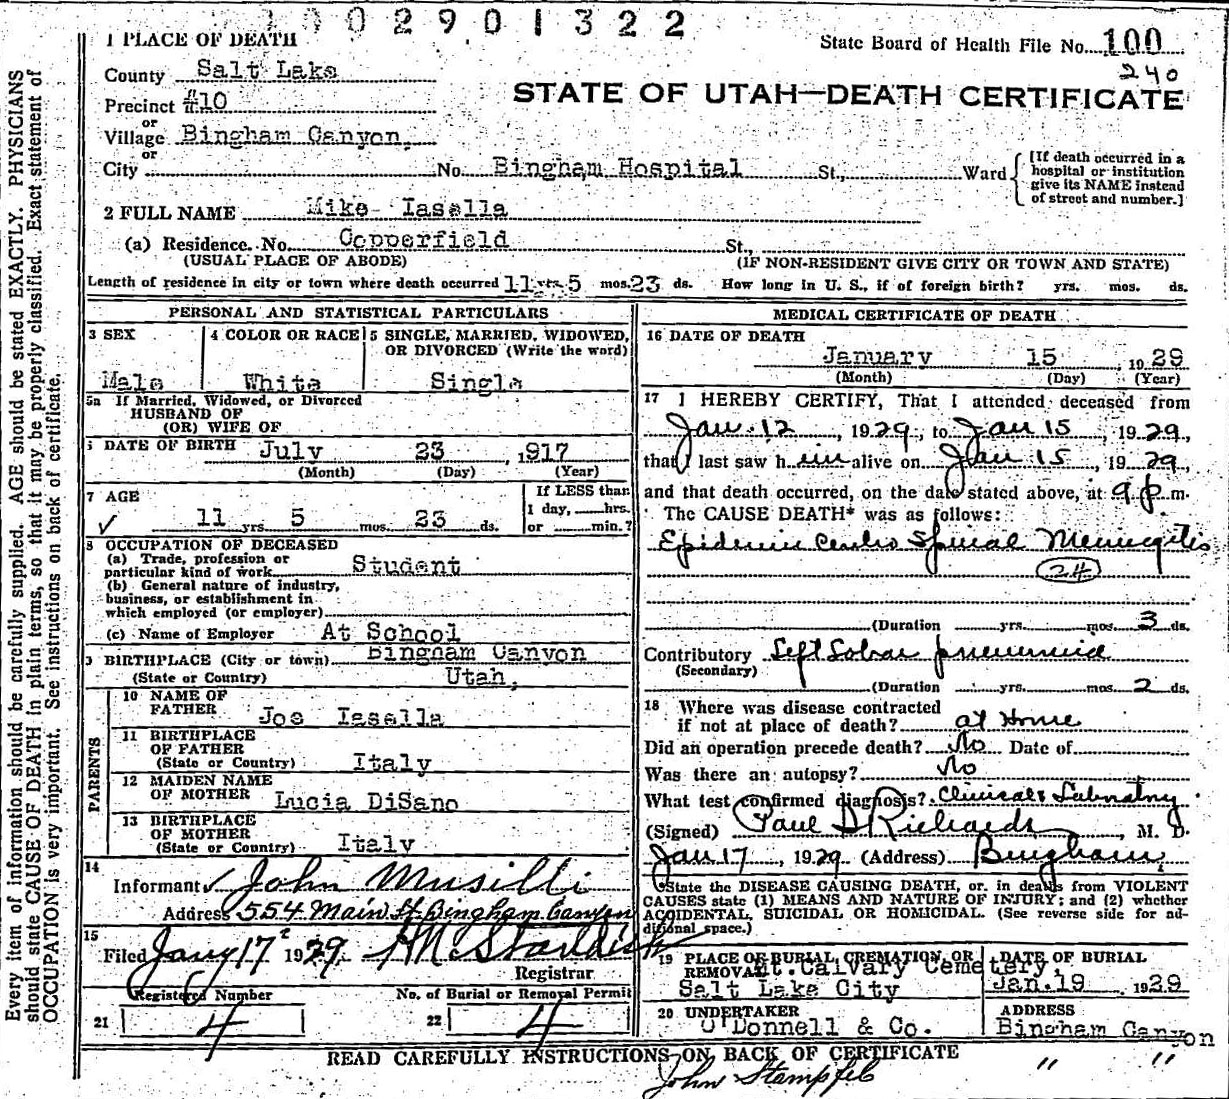 1002901322
1 PLACE OF DEATH
State Board of Health File No. 100
240
County Salt Lake
STATE OF UTAH—DEATH CERTIFICATE
Precinct #10
or
Village Bingham Canyon,
or
City No. Bingham Hospital St., Ward
[If death occurred in a
hospital or institution
give its NAME instead
of street and number.]
2 FULL NAME Mike Iasella
(a) Residence. No. Copperfield St.,
(USUAL PLACE OF ABODE) (IF NON-RESIDENT GIVE CITY OR TOWN AND STATE)
Length of residence in city or town where death occurred 11 yrs. 5 mos. 23 ds. How long in U. S., if of foreign birth? yrs. mos. ds.
PERSONAL AND STATISTICAL PARTICULARS
3 SEX
Male
4 COLOR OR RACE
White
5 SINGLE, MARRIED, WIDOWED,
OR DIVORCED (Write the word)
Single
5a If Married, Widowed, or Divorced
HUSBAND OF
(OR) WIFE OF
6 DATE OF BIRTH July 23, 1917
(Month) (Day) (Year)
7 AGE
11 yrs 5 mos. 23 ds.
If LESS than
1 day, hrs.
or min.?
8 OCCUPATION OF DECEASED
(a) Trade, profession or
particular kind of work Student
(b) General nature of industry,
business, or establishment in
which employed (or employer)
(c) Name of Employer At School
9 BIRTHPLACE (City or town) Bingham Canyon
(State or Country) Utah,
PARENTS
10 NAME OF
FATHER Joe Iasella
11 BIRTHPLACE
OF FATHER
(State or Country) Italy
12 MAIDEN NAME
OF MOTHER Lucia DiSano
13 BIRTHPLACE
OF MOTHER
(State or Country) Italy
14
Informant John Musilli
Address 554 Main St. Bingham Canyon
15
Filed Jany 17 1929.
Registrar
Registered Number No. of Burial or Removal Permit
21 4 22 4
MEDICAL CERTIFICATE OF DEATH
16 DATE OF DEATH
January 15, 1929
(Month) (Day) (Year)
17 I HEREBY CERTIFY, That I attended deceased from
Jan. 12, 1929, to Jan 15, 1929,
that I last saw him alive on Jan 15, 1929,
and that death occurred, on the date stated above, at 9 p.m.
The CAUSE DEATH* was as follows:
Epidemic Cerebro Spinal Meningitis
24
(Duration yrs. mos. 3 ds.
Contributory Left Lobar pneumonia
(Secondary)
(Duration yrs. mos. 2 ds.
18 Where was disease contracted
if not at place of death? at Home
Did an operation precede death? No Date of
Was there an autopsy? No
What test confirmed diagnosis? Clinical & Labratry
(Signed) Paul S Richards, M. D.
Jan 17, 1929 (Address) Bingham,
*State the DISEASE CAUSING DEATH, or in deaths from VIOLENT
CAUSES state (1) MEANS AND NATURE OF INJURY; and (2) whether
ACCIDENTAL, SUICIDAL OR HOMICIDAL. (See reverse side for ad-
ditional space.)
19 PLACE OF BURIAL, CREMATION, OR
REMOVAL Mt. Calvary Cemetery,
Salt Lake City
DATE OF BURIAL
Jan. 19 1929
20 UNDERTAKER
O'Donnell & Co.
ADDRESS
Bingham Canyon
READ CAREFULLY INSTRUCTIONS ON BACK OF CERTIFICATE
John Stampfel " "
Every item of information should be carefully supplied. AGE should be stated EXACTLY. PHYSICIANS
should state CAUSE OF DEATH in plain terms, so that it may be properly classified. Exact statement of
OCCUPATION is very important. See instructions on back of certificate.